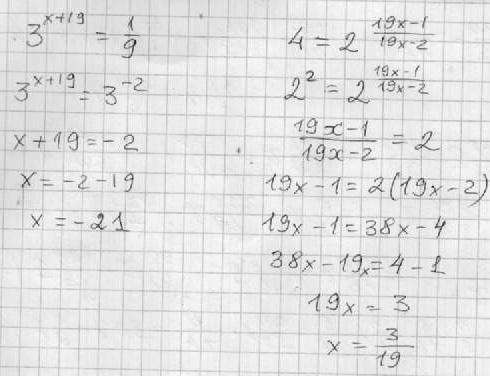 3^{x+19} = \frac{1}{9}
3^{x+19} = 3^{-2}
x + 19 = -2
x = -2 - 19
x = -21
4 = 2^{\frac{19x-1}{19x-2}}
2^2 = 2^{\frac{19x-1}{19x-2}}
\frac{19x-1}{19x-2} = 2
19x - 1 = 2(19x - 2)
19x - 1 = 38x - 4
38x - 19x = 4 - 1
19x = 3
x = \frac{3}{19}